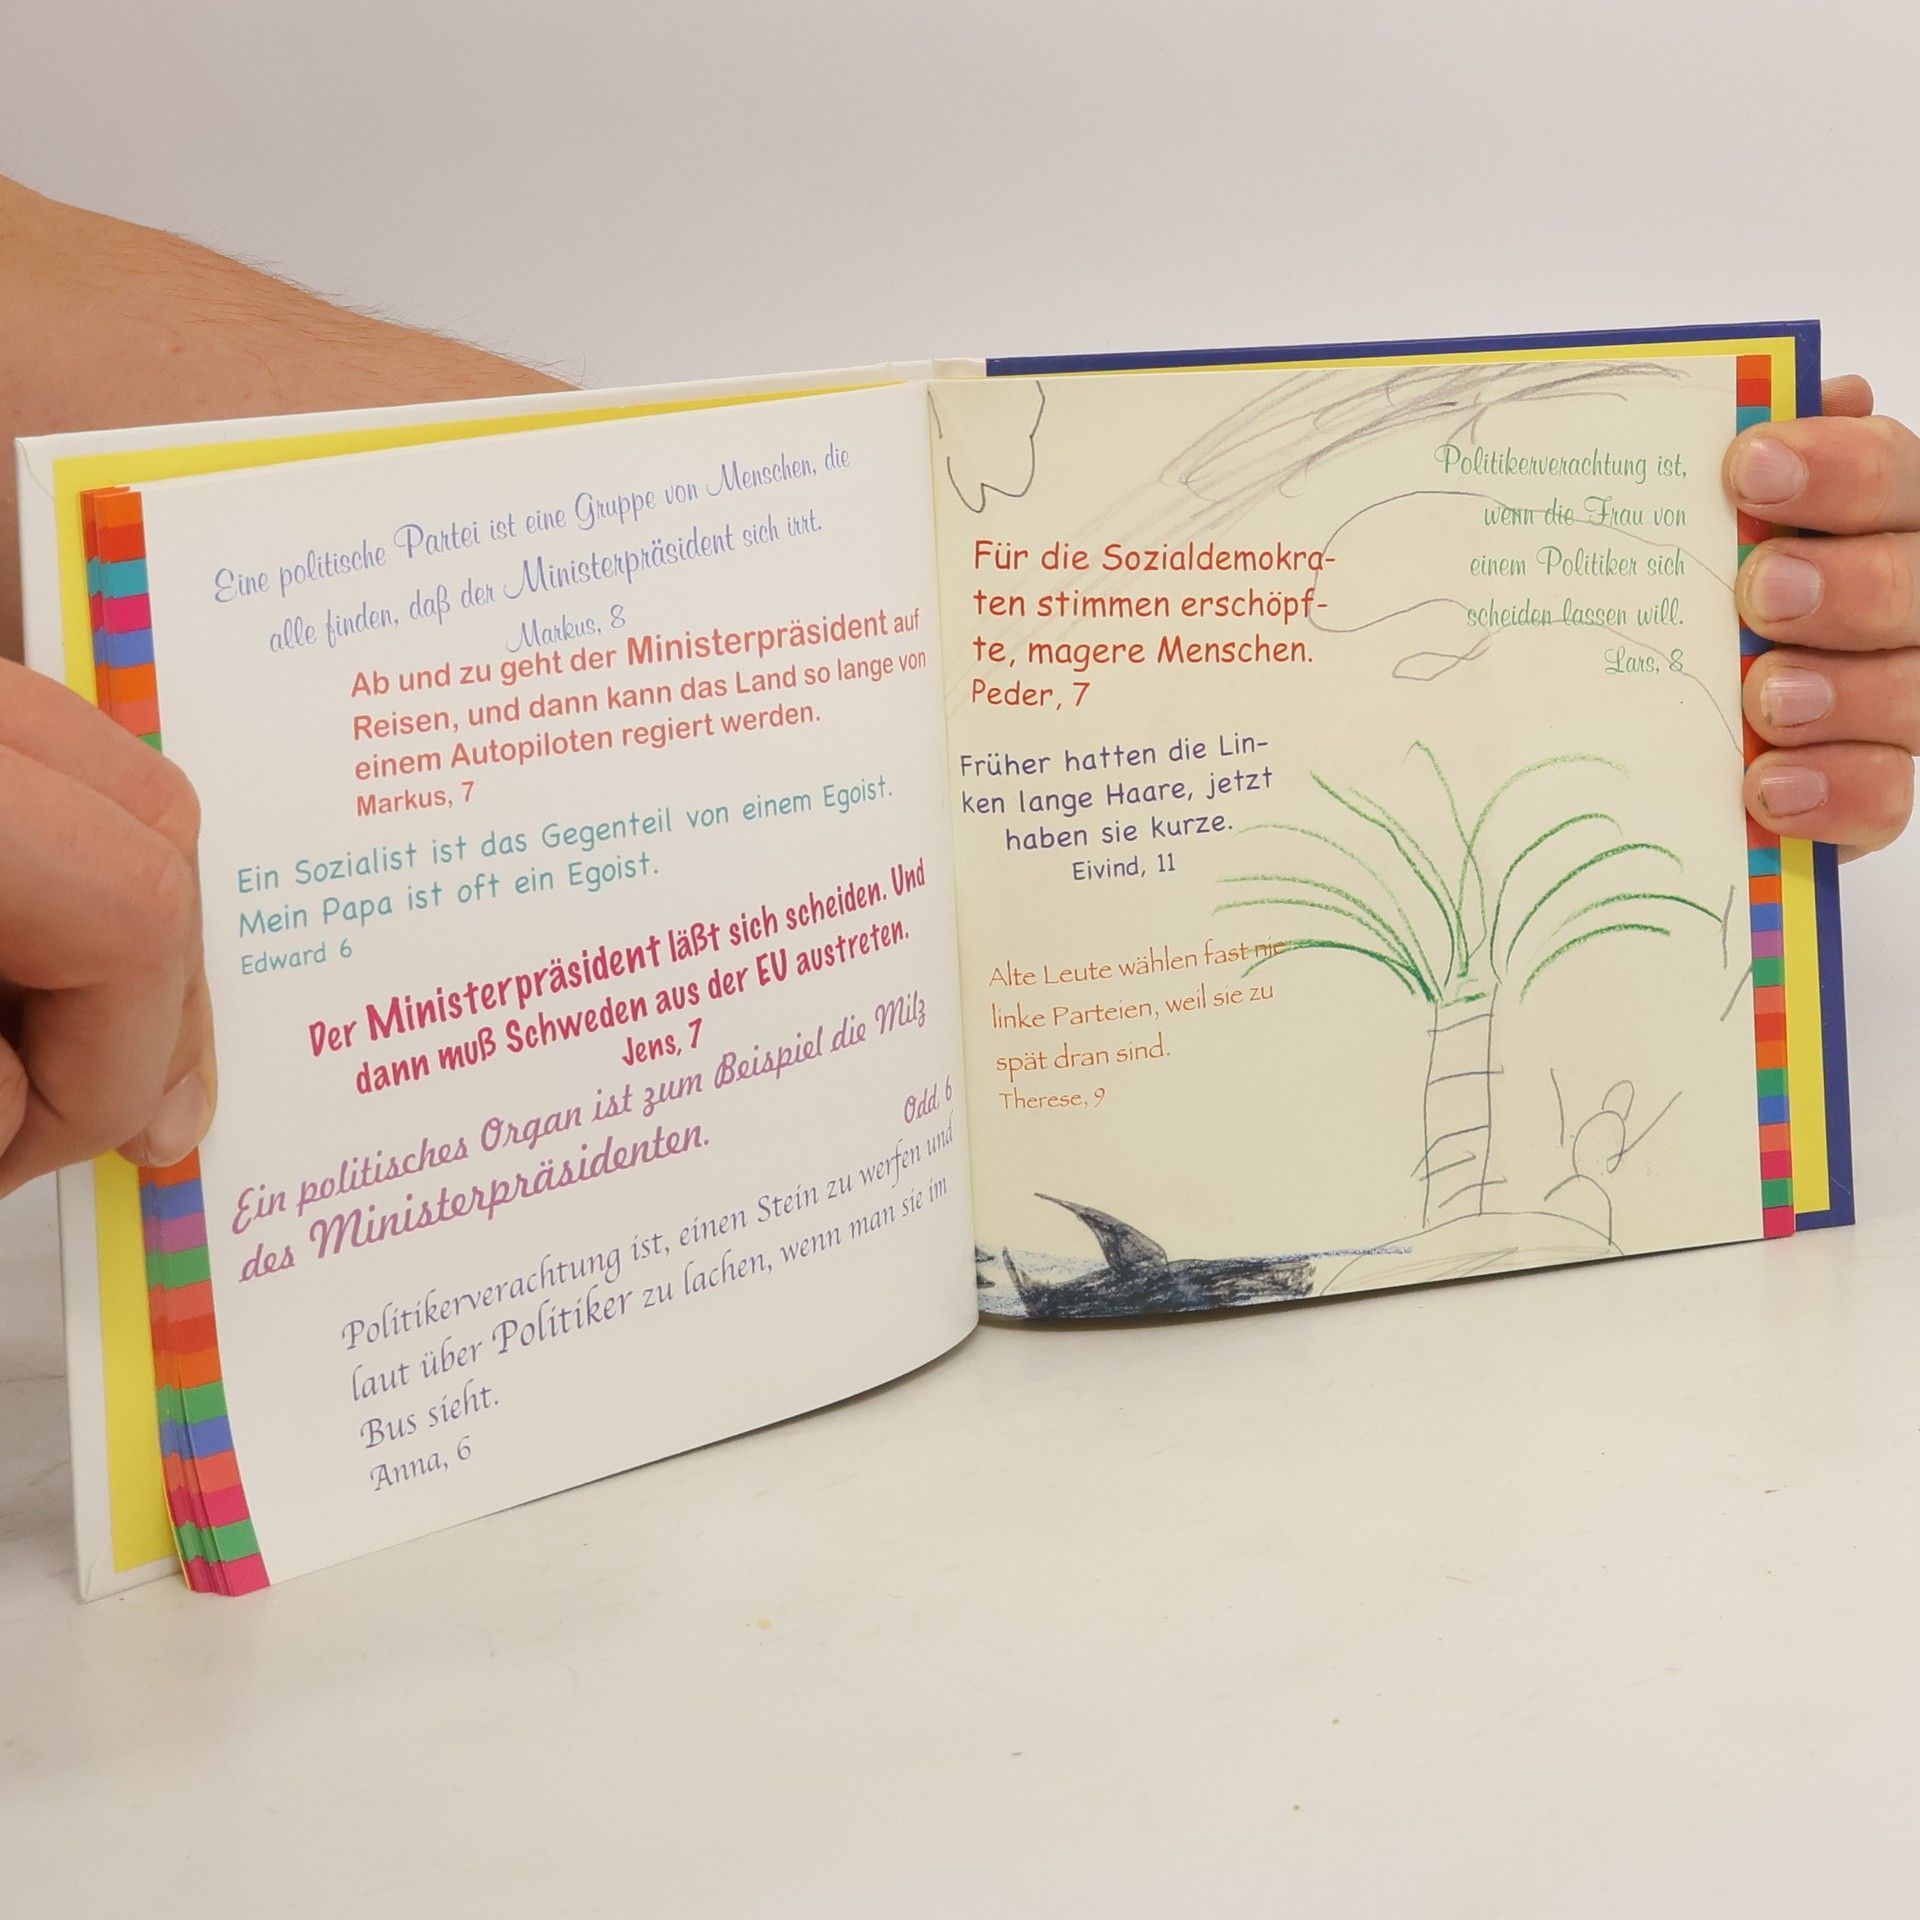 Eine politische Partei ist eine Gruppe von Menschen, die
alle finden, daß der Ministerpräsident sich irrt.
Markus, 8
Ab und zu geht der Ministerpräsident auf
Reisen, und dann kann das Land so lange von
einem Autopiloten regiert werden.
Markus, 7
Ein Sozialist ist das Gegenteil von einem Egoist.
Mein Papa ist oft ein Egoist.
Edward 6
Der Ministerpräsident läßt sich scheiden. Und
dann muß Schweden aus der EU austreten.
Jens, 7
Ein politisches Organ ist zum Beispiel die Milz
des Ministerpräsidenten.
Odd, 6
Politikerverachtung ist, einen Stein zu werfen und
laut über Politiker zu lachen, wenn man sie im
Bus sieht.
Anna, 6
Politikerverachtung ist,
wenn die Frau von
einem Politiker sich
scheiden lassen will.
Lars, 8
Für die Sozialdemokra-
ten stimmen erschöpf-
te, magere Menschen.
Peder, 7
Früher hatten die Lin-
ken lange Haare, jetzt
haben sie kurze.
Eivind, 11
Alte Leute wählen fast nie
linke Parteien, weil sie zu
spät dran sind.
Therese, 9